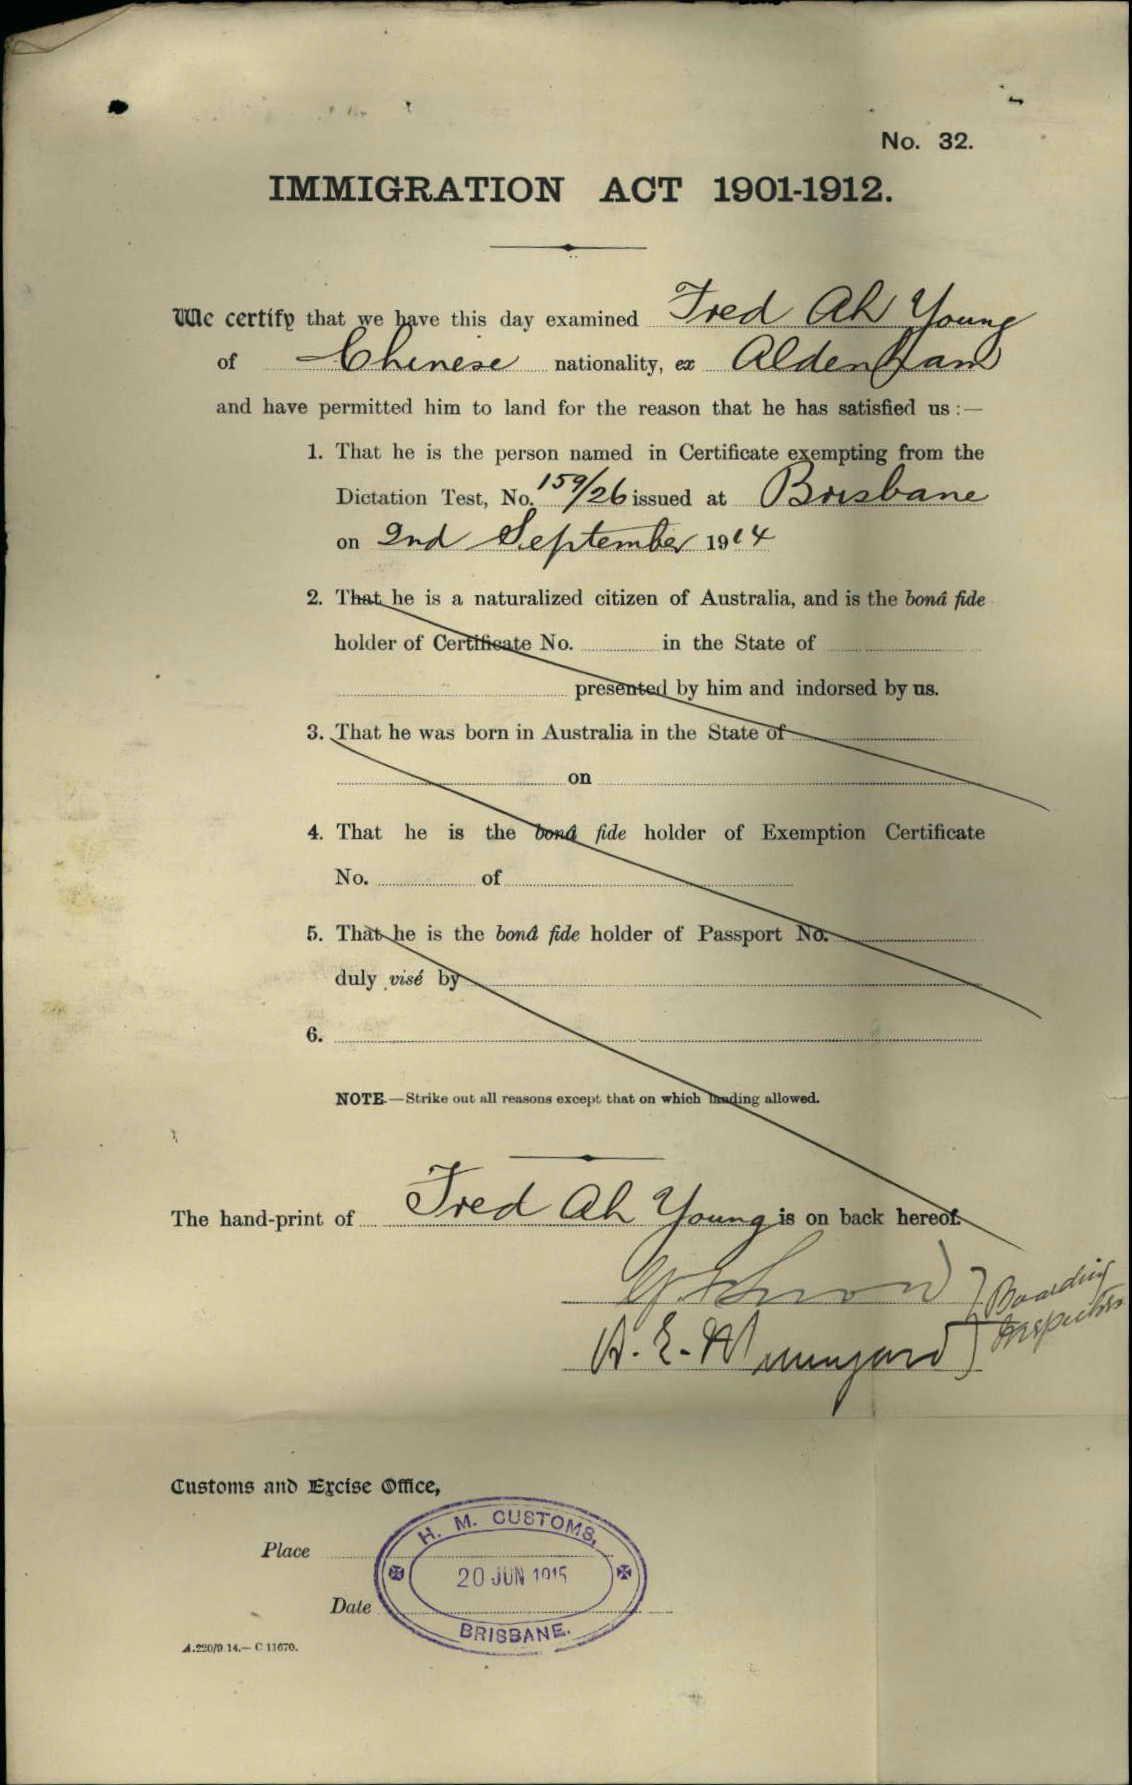 No. 32.
IMMIGRATION ACT 1901-1912.
We certify that we have this day examined Fred Ah Young
of Chinese nationality, ex Aldenham
and have permitted him to land for the reason that he has satisfied us :—
1. That he is the person named in Certificate exempting from the
Dictation Test, No. 159/26 issued at Brisbane
on 2nd September 1914
2. That he is a naturalized citizen of Australia, and is the bonâ fide
holder of Certificate No. in the State of
presented by him and indorsed by us.
3. That he was born in Australia in the State of
on
4. That he is the bonâ fide holder of Exemption Certificate
No. of
5. That he is the bonâ fide holder of Passport No.
duly visé by
6.
NOTE.—Strike out all reasons except that on which landing allowed.
The hand-print of Fred Ah Young is on back hereof.
Boarding
Inspectors
H. E.
Customs and Excise Office,
H. M. CUSTOMS,
Place
20 JUN 1915
Date
BRISBANE.
A.220/9.14.—C 11670.